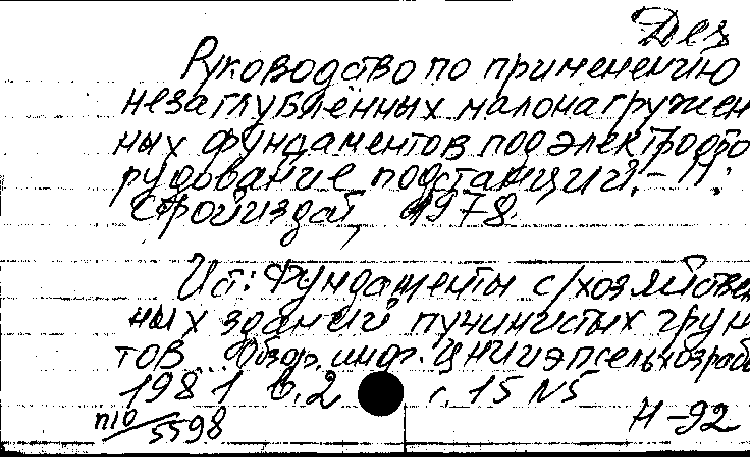 Дез
Руководство по применению
незаглублённых малонагружен
ных фундаментов под электрообо
рудование подстанций. - М:
Стройиздат, 1978.
Ист: Фундаменты с/хозяйствен
ных зданий пучинистых грун
тов. Обзор. инф. ЦНИИЭПсельхоз
1981 в.2 с. 15 N5
п10/5598
Н-92